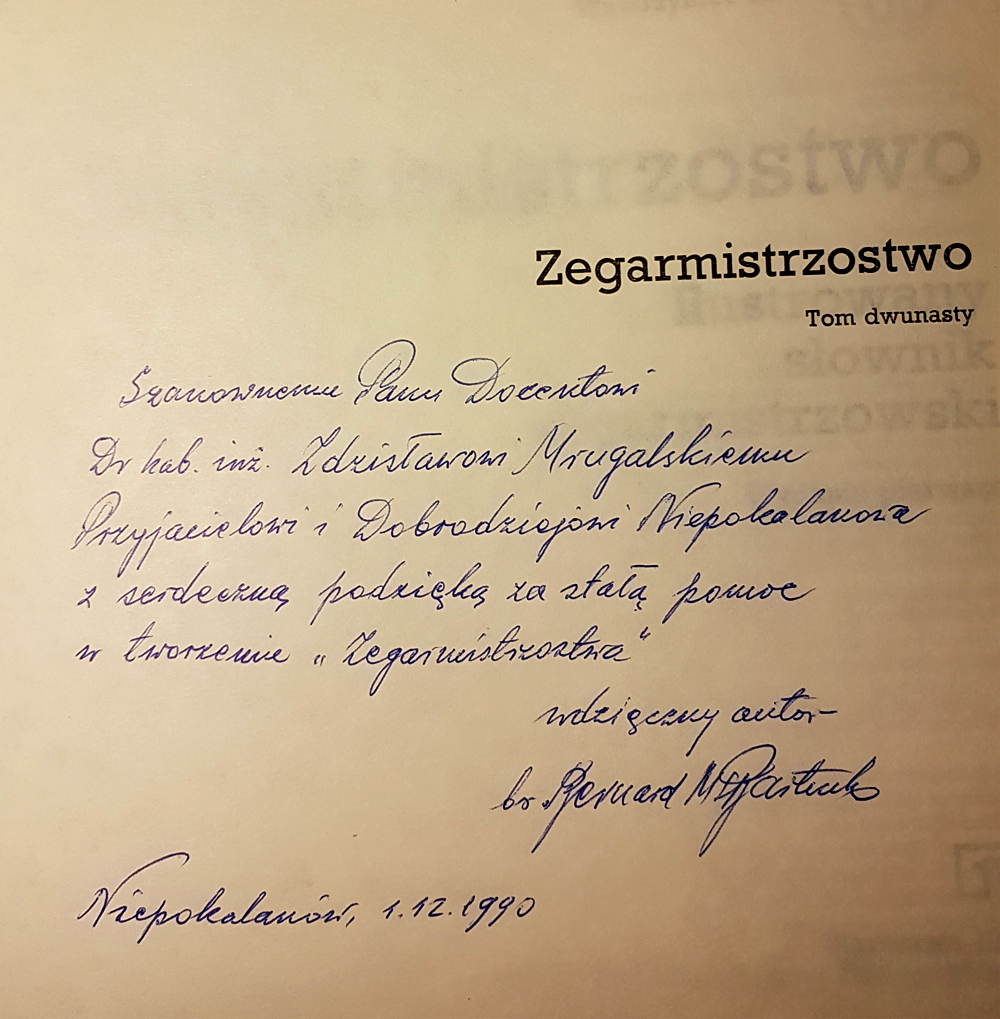 Zegarmistrzostwo
Tom dwunasty
Szanownemu Panu Docentowi
Dr hab. inż. Zdzisławowi Mrugalskiemu
Przyjacielowi i Dobrodziejowi Niepokalanowa
z serdeczną podzięką za stałą pomoc
w tworzenie „Zegarmistrzostwa"
wdzięczny autor-
br. Bernard M.
Niepokalanów, 1.12.1990
mistrzostwo
ilustrowany
słownik